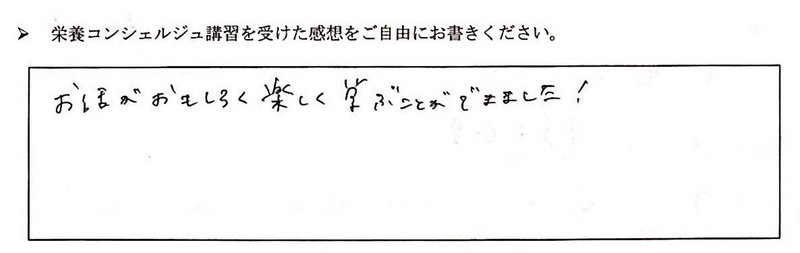 ➢ 栄養コンシェルジュ講習を受けた感想をご自由にお書きください。
お話がおもしろく楽しく学ぶことができました!